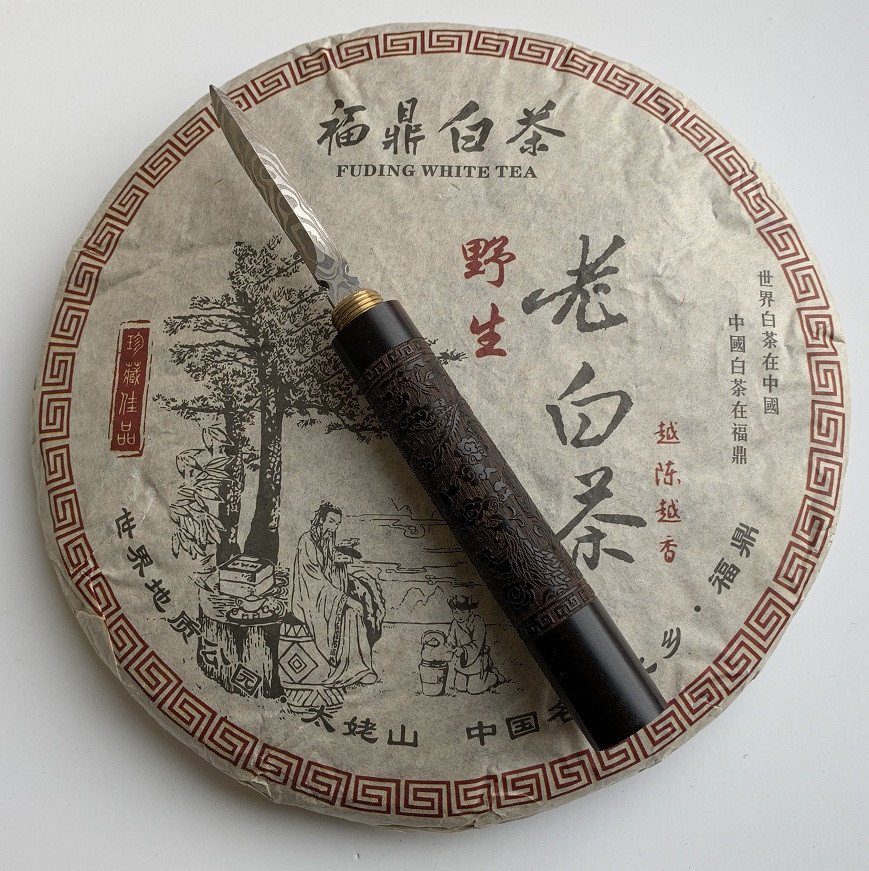 福鼎白茶
FUDING WHITE TEA
世界白茶在中國
中國白茶在福鼎
老白茶
野生
越陈越香
珍藏佳品
世界地质公园·太姥山
中国名
乡·福鼎